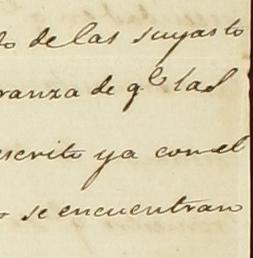 do de las suyas to
ranza de q.e las
escrito ya con el
se encuentran